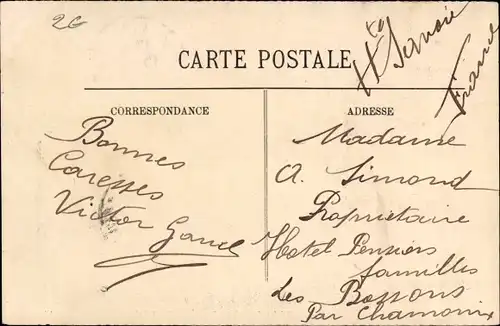 2G
CARTE POSTALE
CORRESPONDANCE
Bonnes
Caresses
Victor
ADRESSE
Madame
A. Simond
Propriétaire
Hotel Pension
familles
Les Bossons
Par Chamonix
Hte Savoie
France